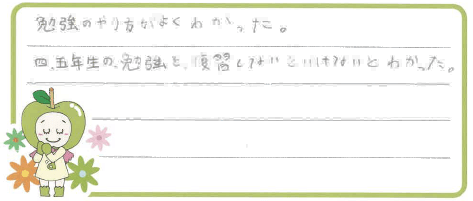 勉強のやり方がよくわかった。
四、五年生の、勉強を、復習しないといけないとわかった。